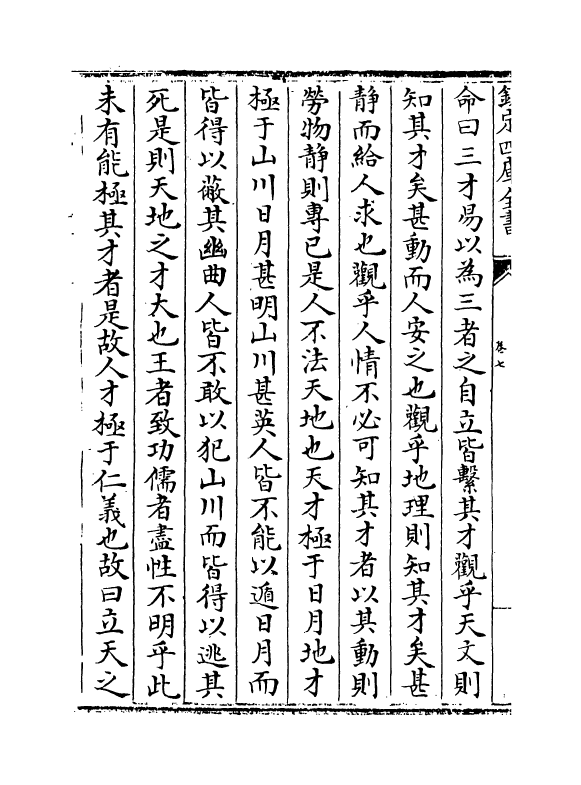 欽定四庫全書
卷七
命曰三才易以為三者之自立皆繫其才觀乎天文則
知其才矣甚動而人安之也觀乎地理則知其才矣甚
静而給人求也觀乎人情不必可知其才者以其動則
勞物静則專已是人不法天地也天才極于日月地才
極于山川日月甚明山川甚英人皆不能以遁日月而
皆得以蔽其幽曲人皆不敢以犯山川而皆得以逃其
死是則天地之才大也王者致功儒者盡性不明乎此
未有能極其才者是故人才極于仁義也故曰立天之